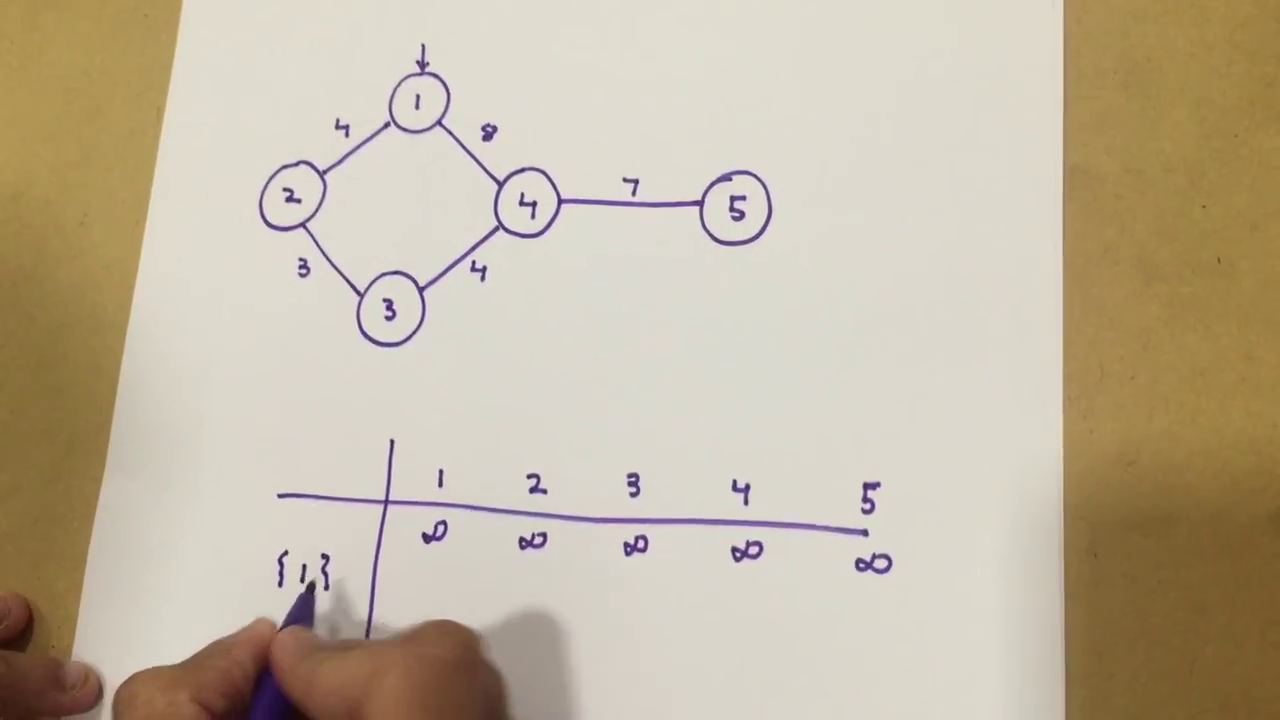 1
4 8
2 4 7 5
3 4
3
1 2 3 4 5
∞ ∞ ∞ ∞ ∞
{1,}